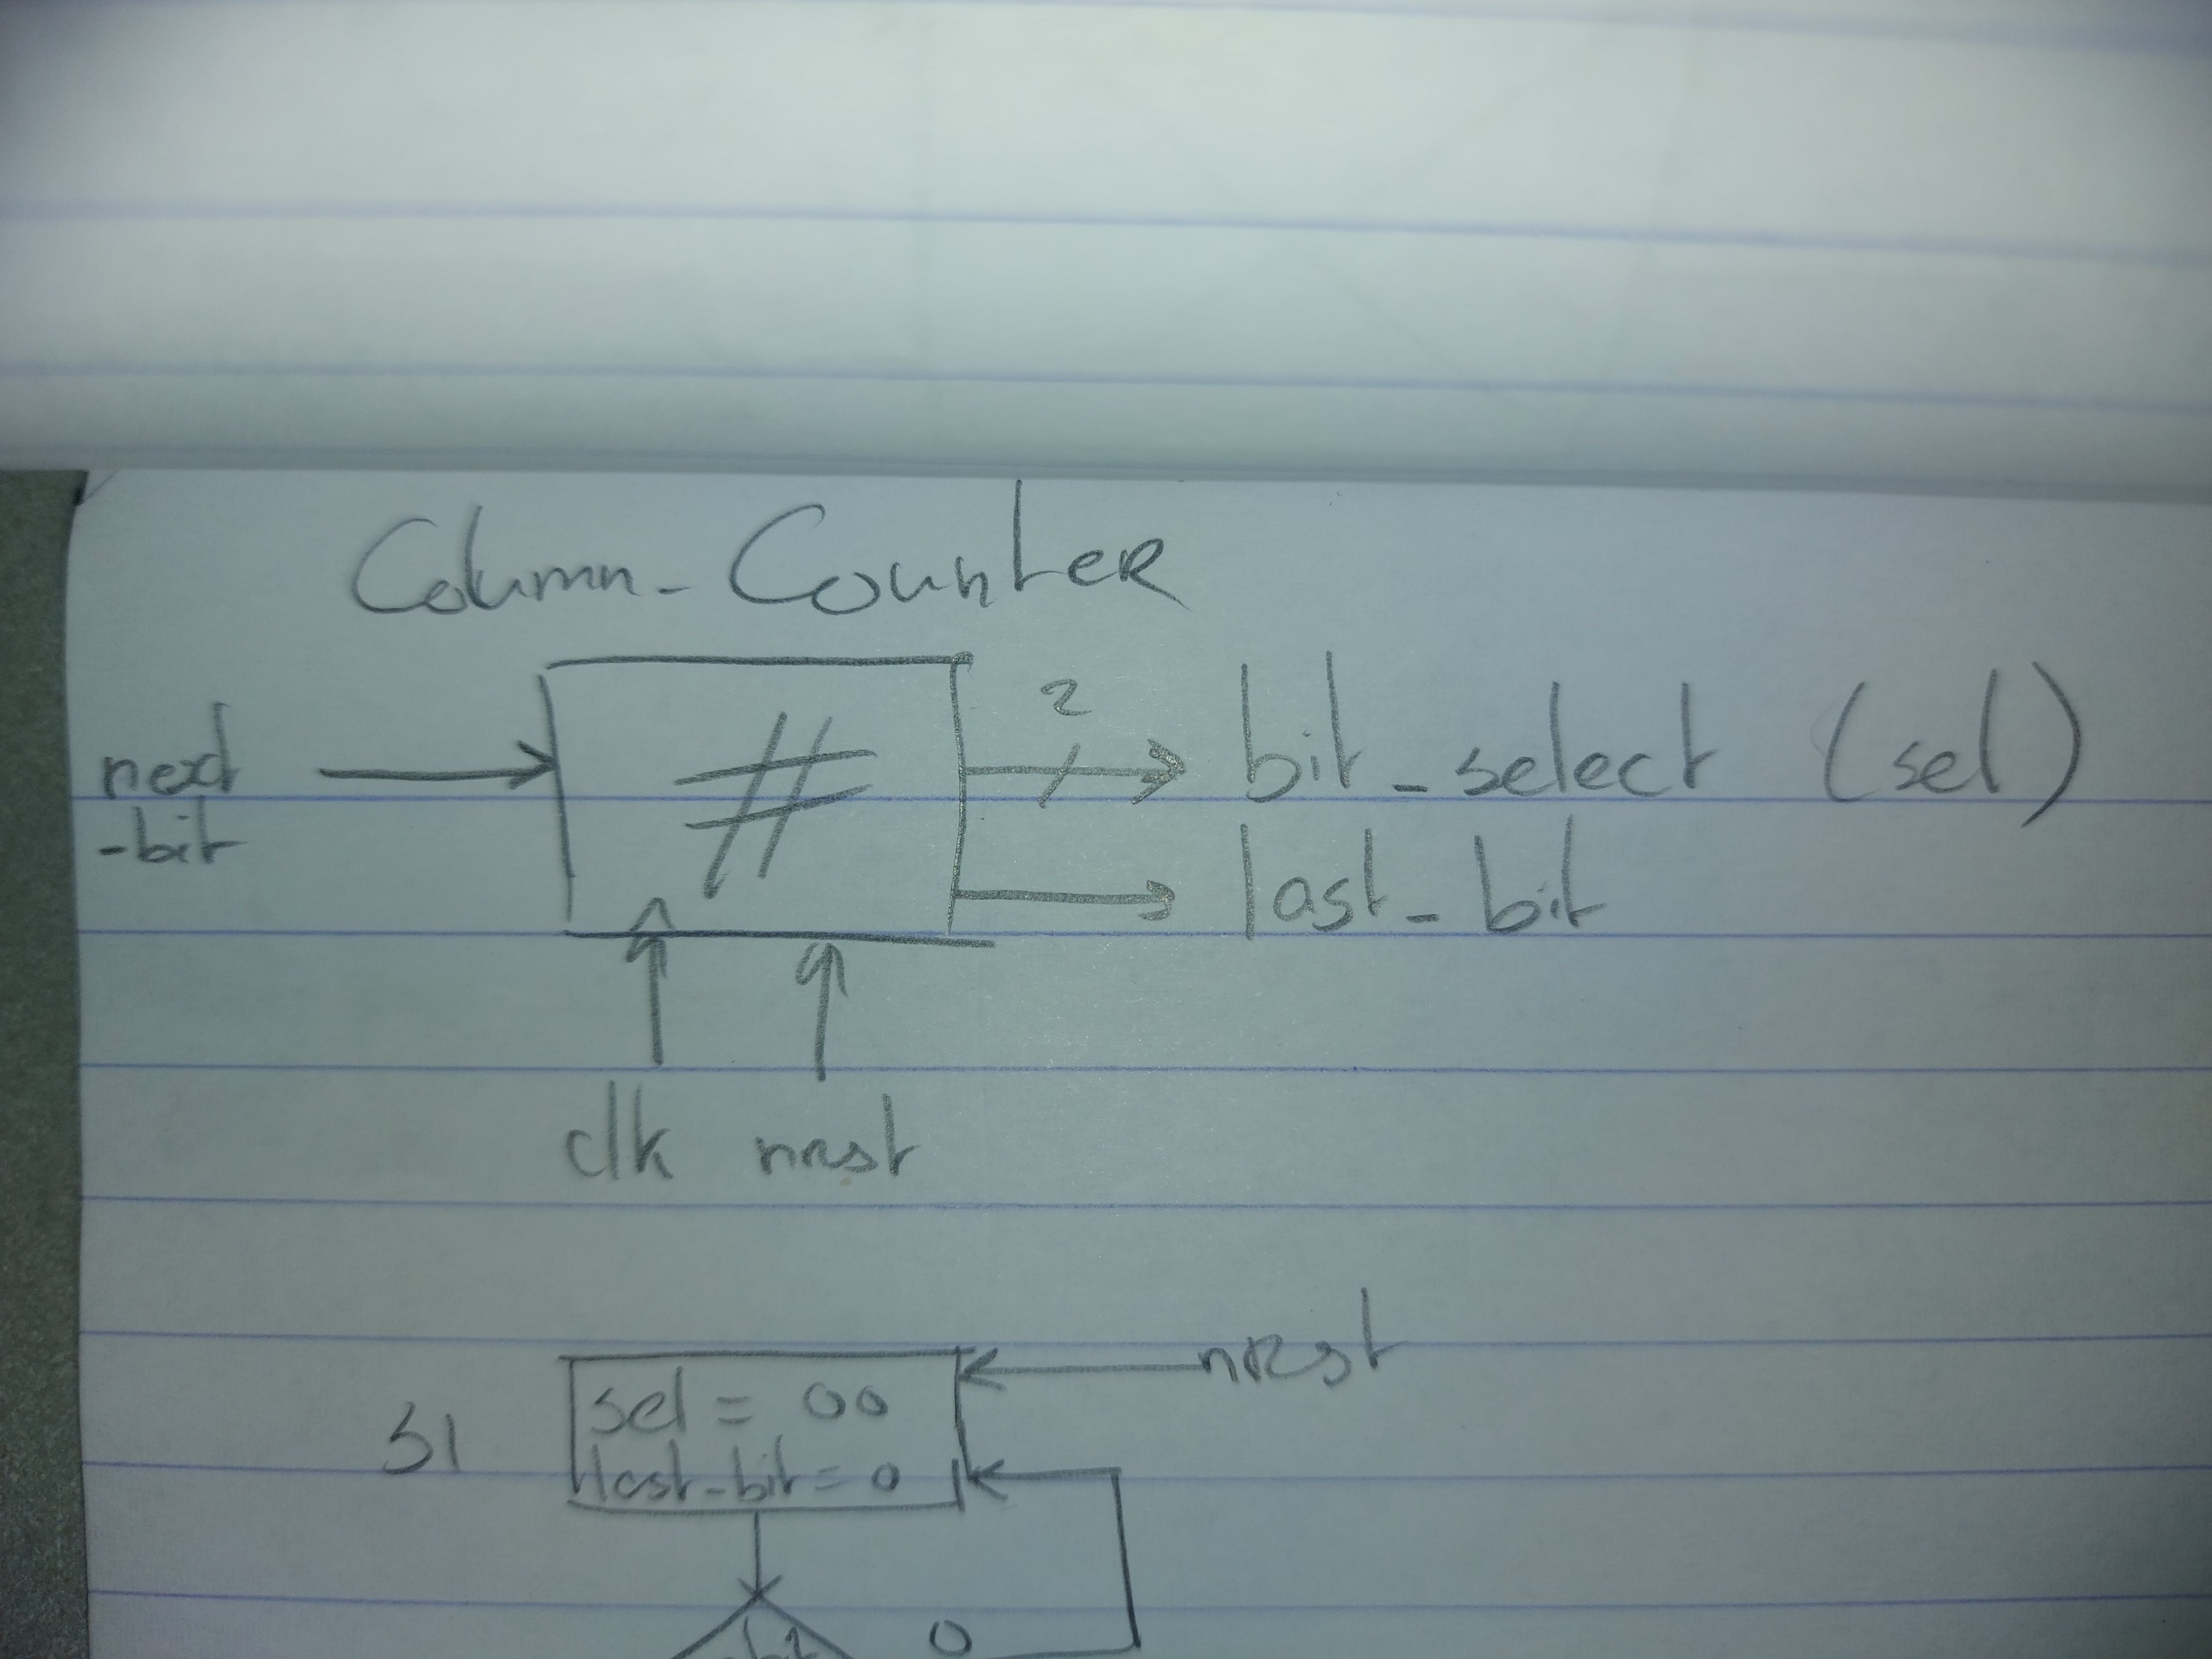 Column-Counter
next
-bit
#
2
bit-select (sel)
last-bit
clk nrst
S1
sel = 00
last-bit = 0
nrst
0